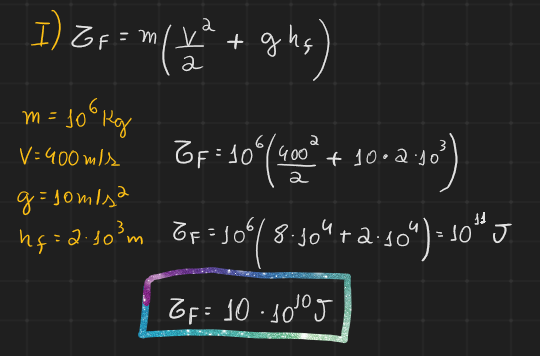 I) τF = m(V²/2 + g hf)
m = 10⁶ Kg
V = 400 m/s
g = 10 m/s²
hf = 2·10³ m
τF = 10⁶(400²/2 + 10·2·10³)
τF = 10⁶(8·10⁴ + 2·10⁴) = 10¹¹ J
τF = 10 · 10¹⁰ J